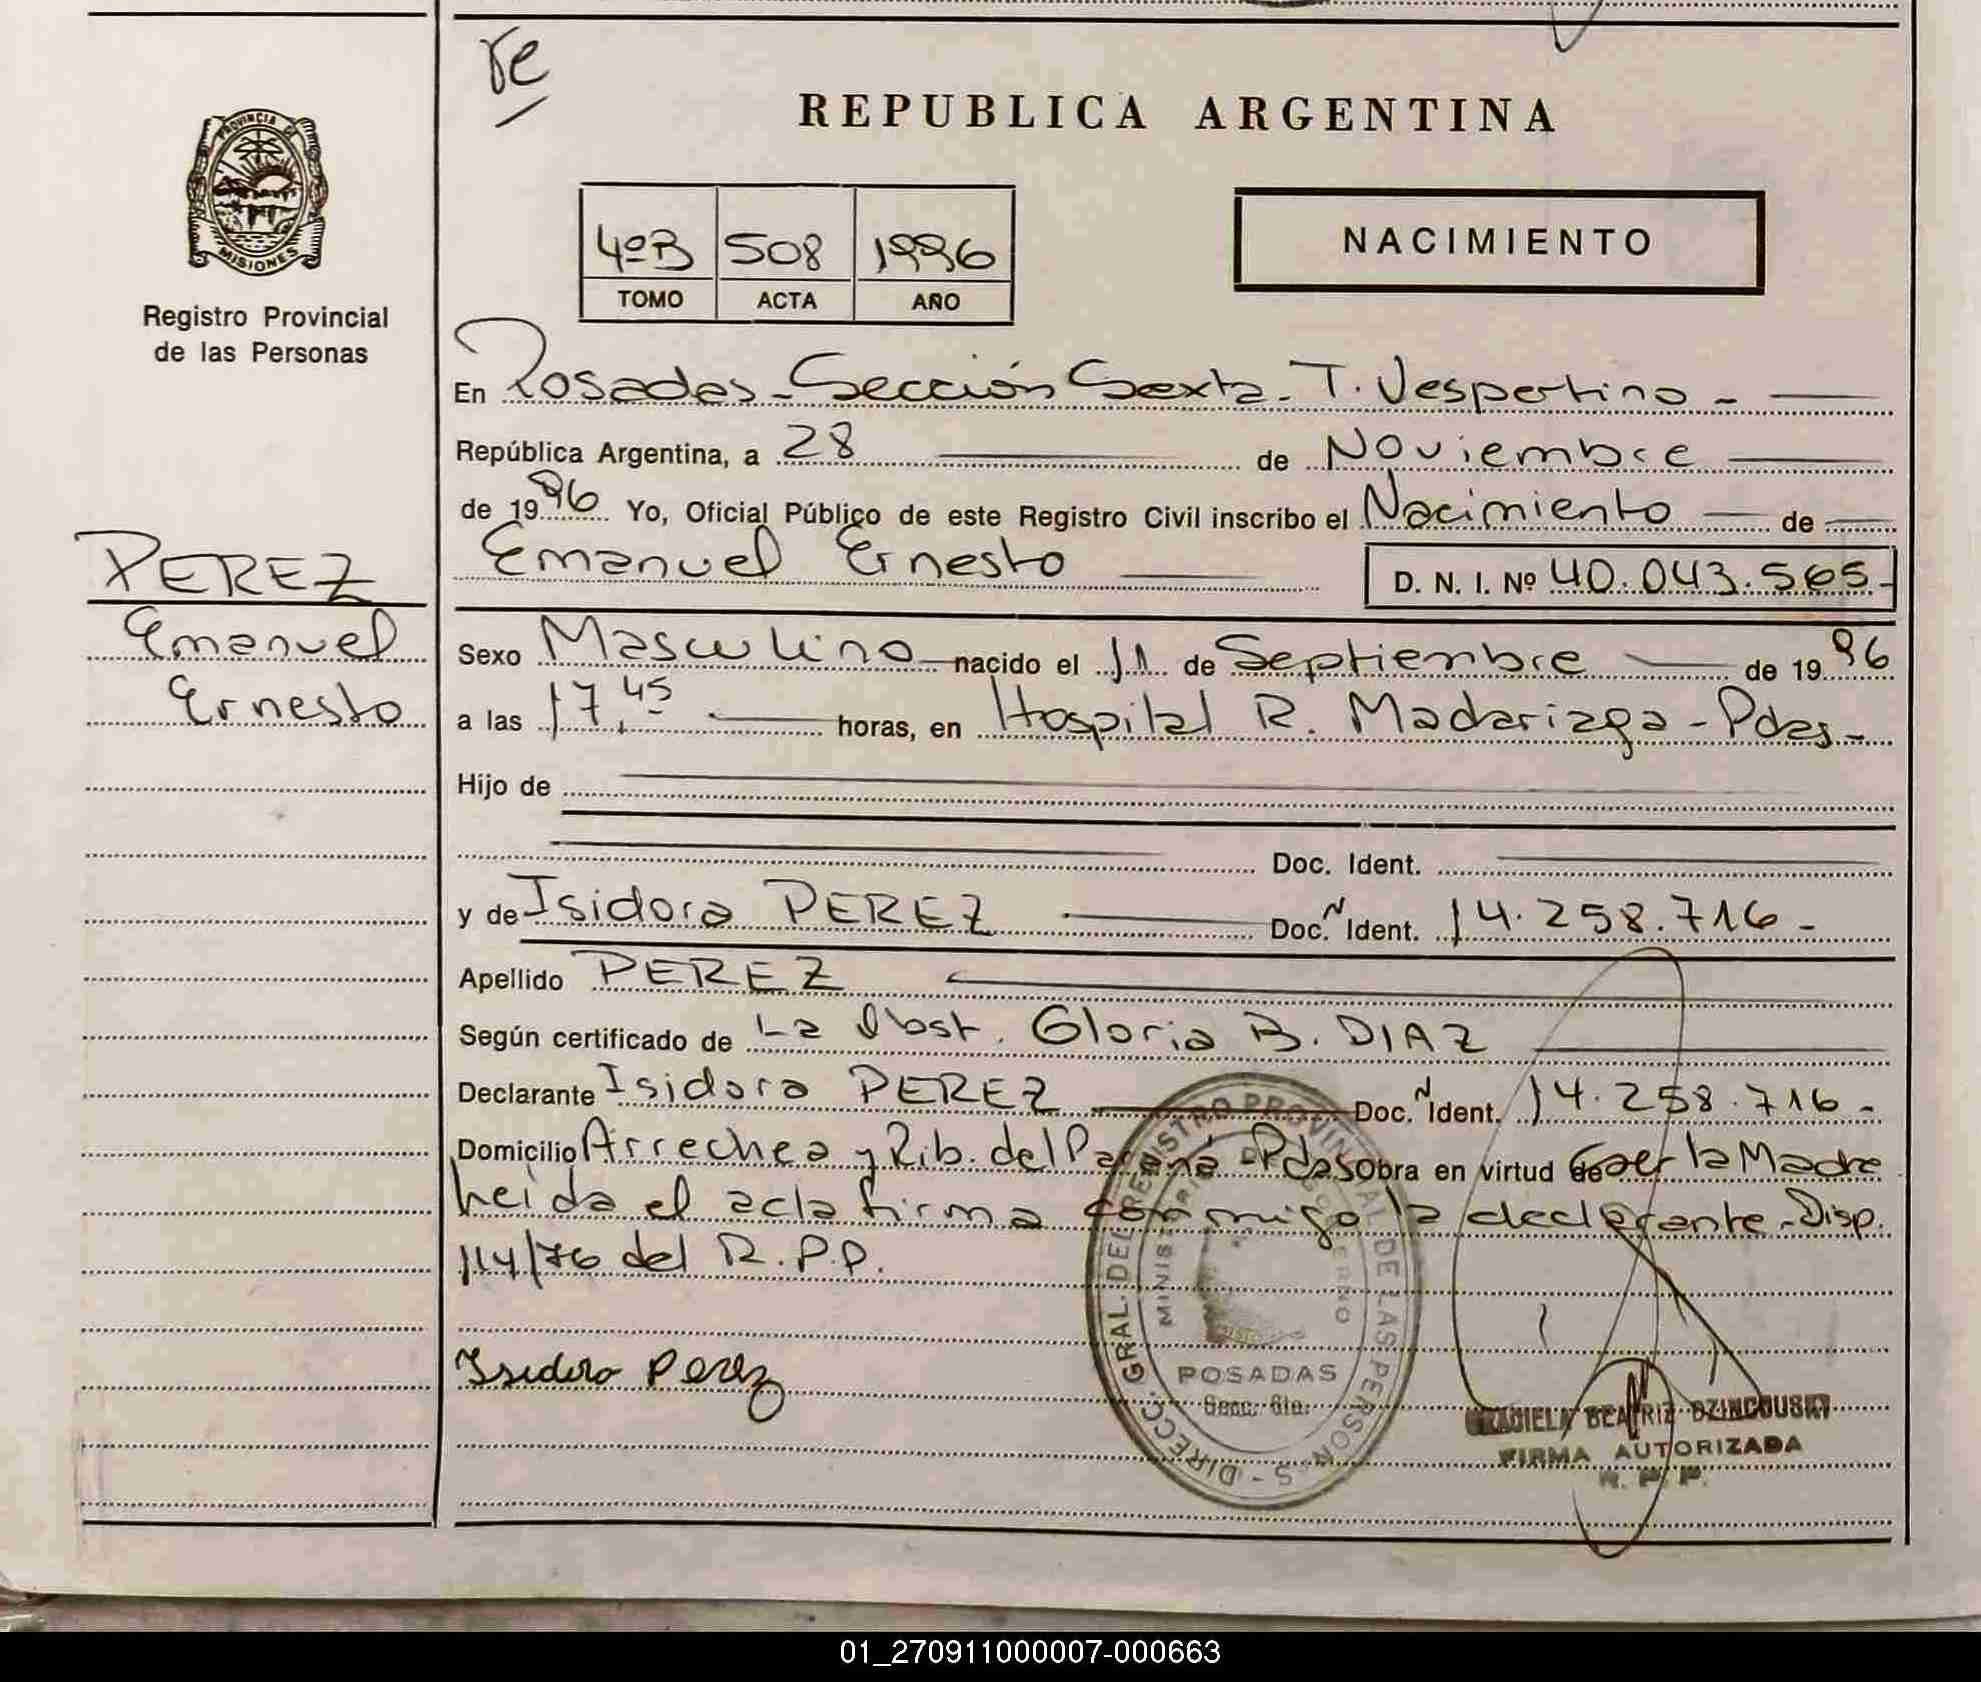 re
PROVINCIA DE
MISIONES
Registro Provincial
de las Personas
PEREZ
Emanuel
Ernesto
REPUBLICA ARGENTINA
4ºB 508 1996
TOMO ACTA AÑO
NACIMIENTO
En Posadas - Sección Sexta - T. Vespertino -
República Argentina, a 28 de Noviembre
de 1996 Yo, Oficial Público de este Registro Civil inscribo el Nacimiento de
Emanuel Ernesto D. N. I. Nº 40.043.565-
Sexo Masculino nacido el 11 de Septiembre de 1996
a las 17,45 horas, en Hospital R. Madariaga - Pdas -
Hijo de
Doc. Ident.
y de Isidora PEREZ Doc. N Ident. 14.258.716 -
Apellido PEREZ
Según certificado de La Obst. Gloria B. DIAZ
Declarante Isidora PEREZ Doc. N Ident. 14.258.716 -
Domicilio Arrechea y Rib. del Paraná - Pdas obra en virtud de ser la Madre
leída el acta firma conmigo la declarante - Disp.
114/76 del R.P.P.
Isidora Perez
DIRECC. GRAL. DEL REGISTRO PROVINCIAL DE LAS PERSONAS -
MINISTERIO DE GOBIERNO
POSADAS
Secc. 6ta.
GRACIELA BEATRIZ DZINCOUSKI
FIRMA AUTORIZADA
R. P. P.
01_270911000007-000663